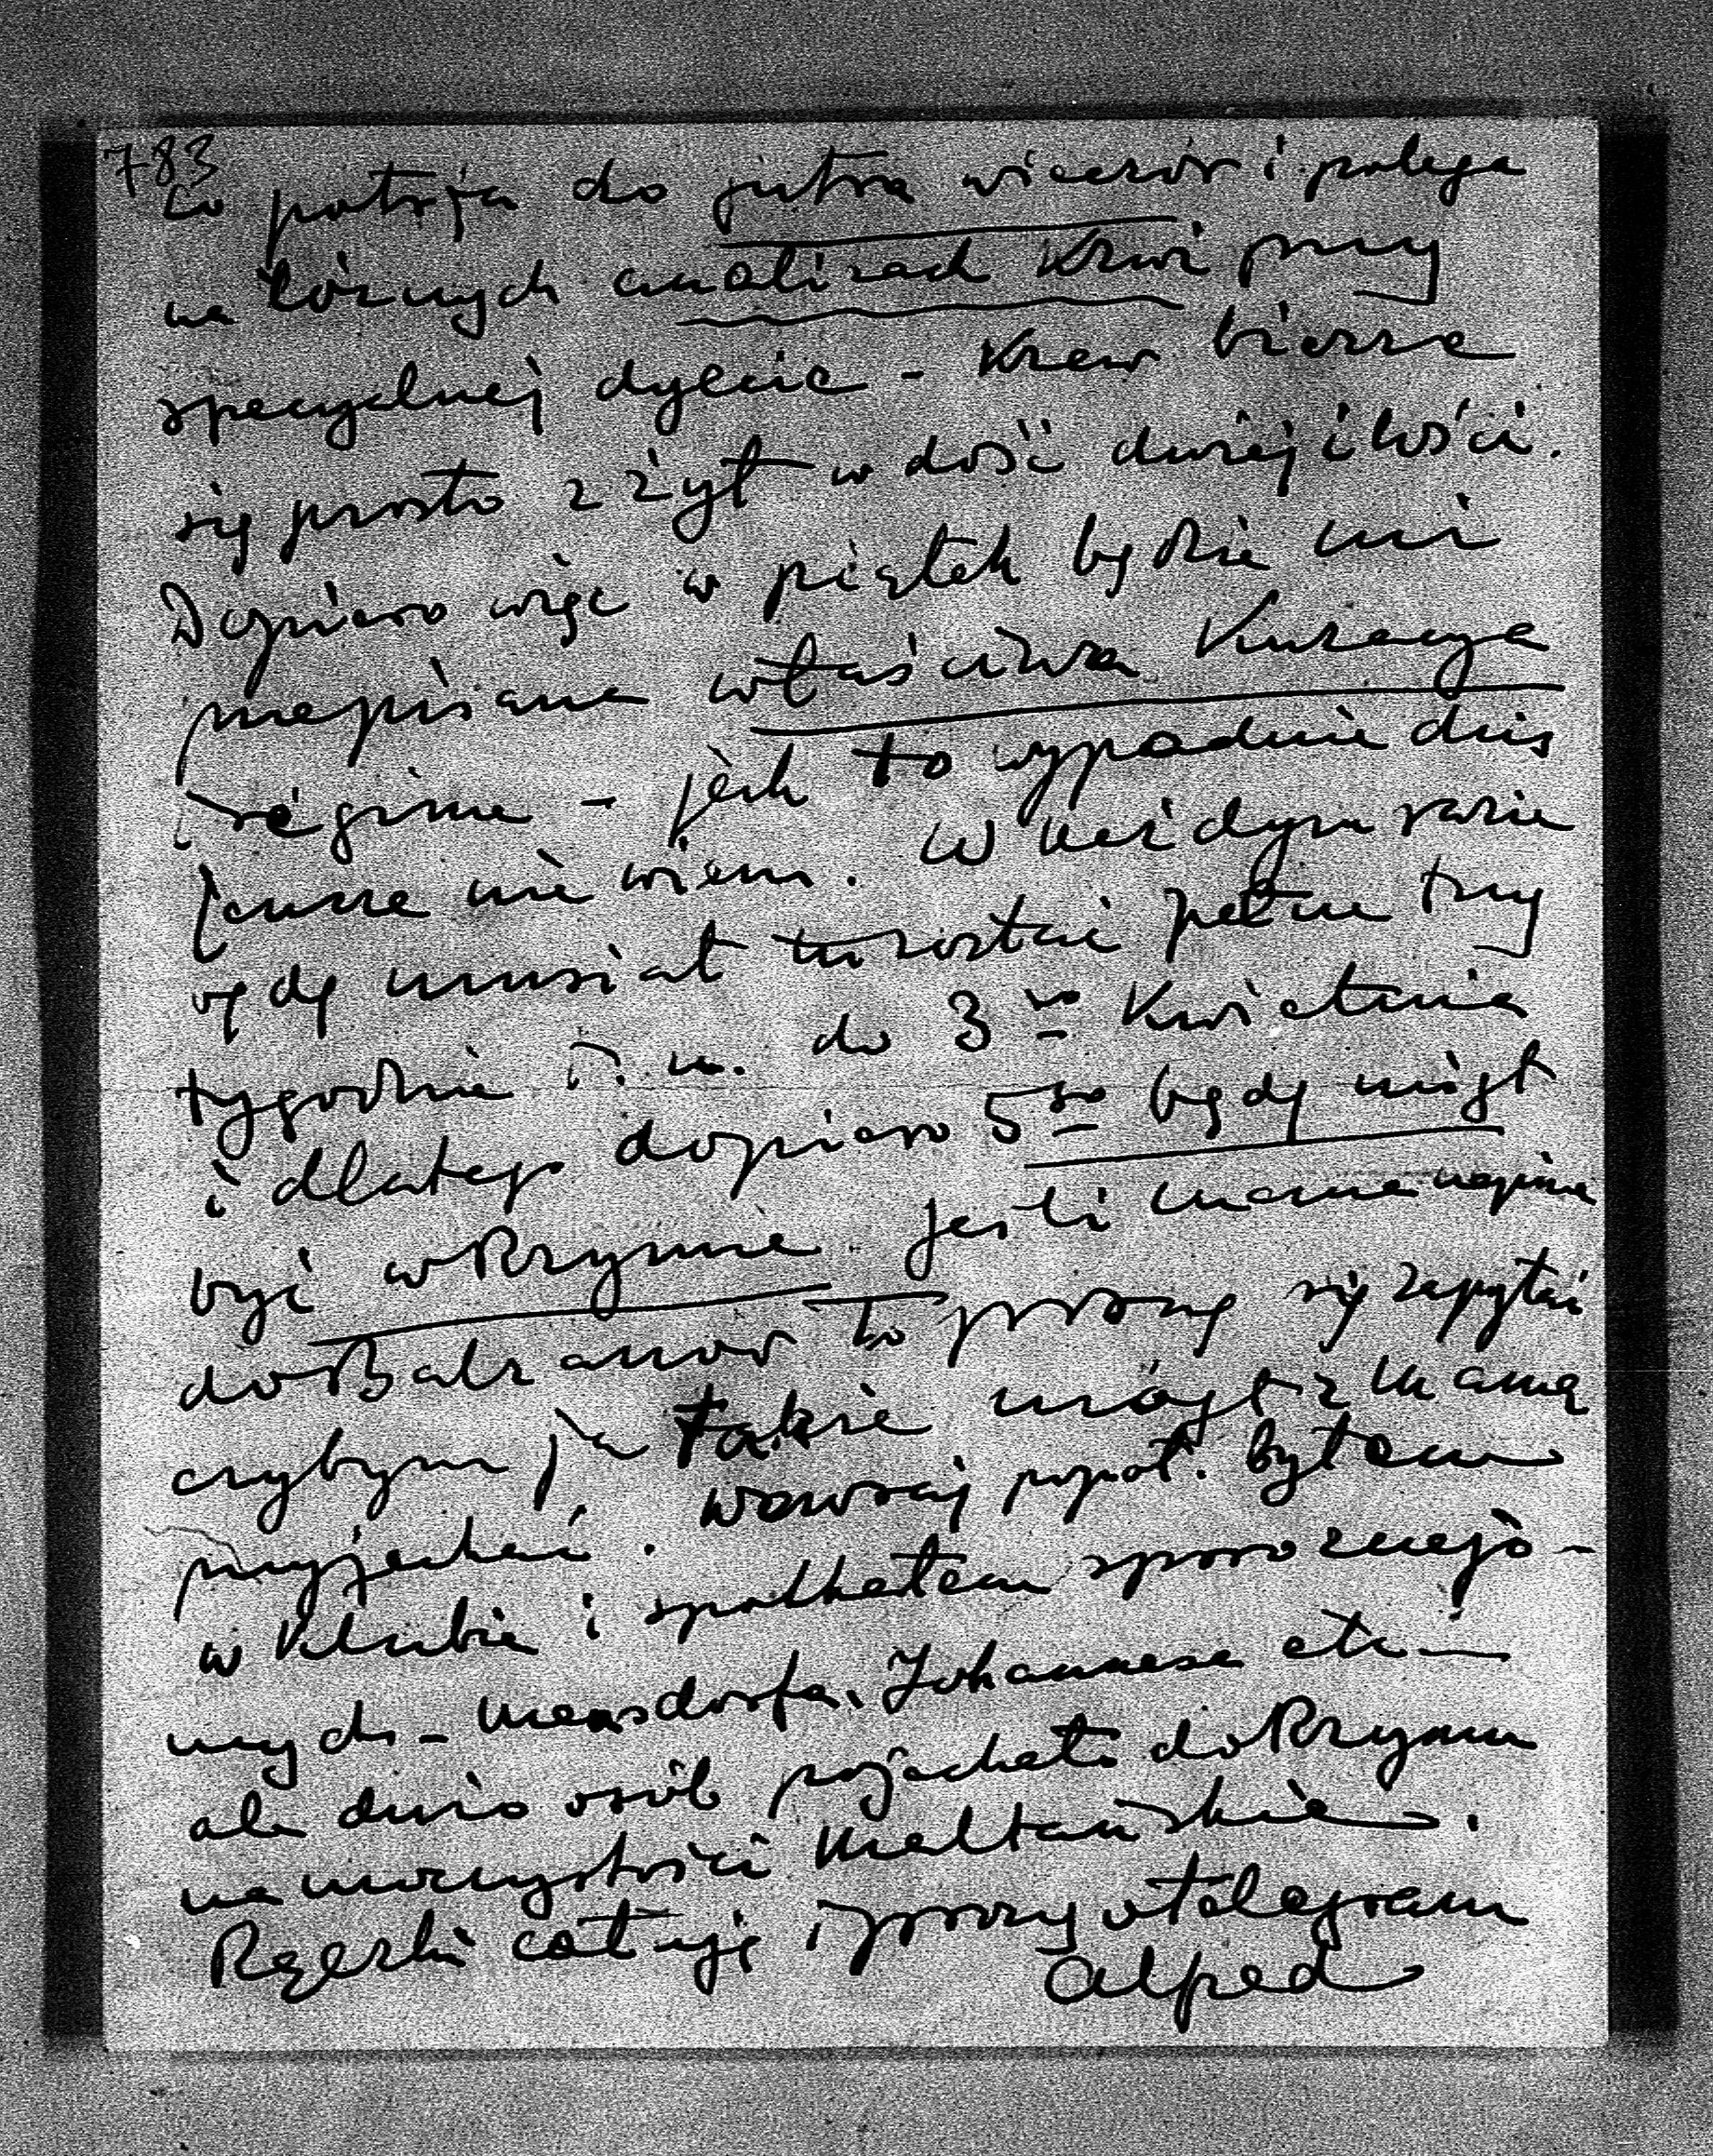 783
co potrwa do jutra wieczór i polega
na różnych analizach krwi przy
specyalnej dyecie - Krew bierze
się prosto z żył w dość dużej ilości.
Dopiero więc w piątek będzie mi
przepisana właściwa Kuracya
i régime - jak to wypadnie dziś
jeszcze nie wiem. W każdym razie
będę musiał tu zostać pełne trzy
tygodnie t. zn. do 3go Kwietnia
i dlatego dopiero 5go będę mógł
być w Rzymie. Jeśli mama napisze
do Balzanów to proszę się zapytać
czybym ja także mógł z Mamą
przyjechać. Wczoraj popoł. byłem
w Klubie i spotkałem sporo znajo-
mych - Mensdorfa, Johannesa etc
ale dużo osób pojechało do Rzymu
na uroczystości Maltańskie.
Rączki całuję i proszę o telegram
Alfred